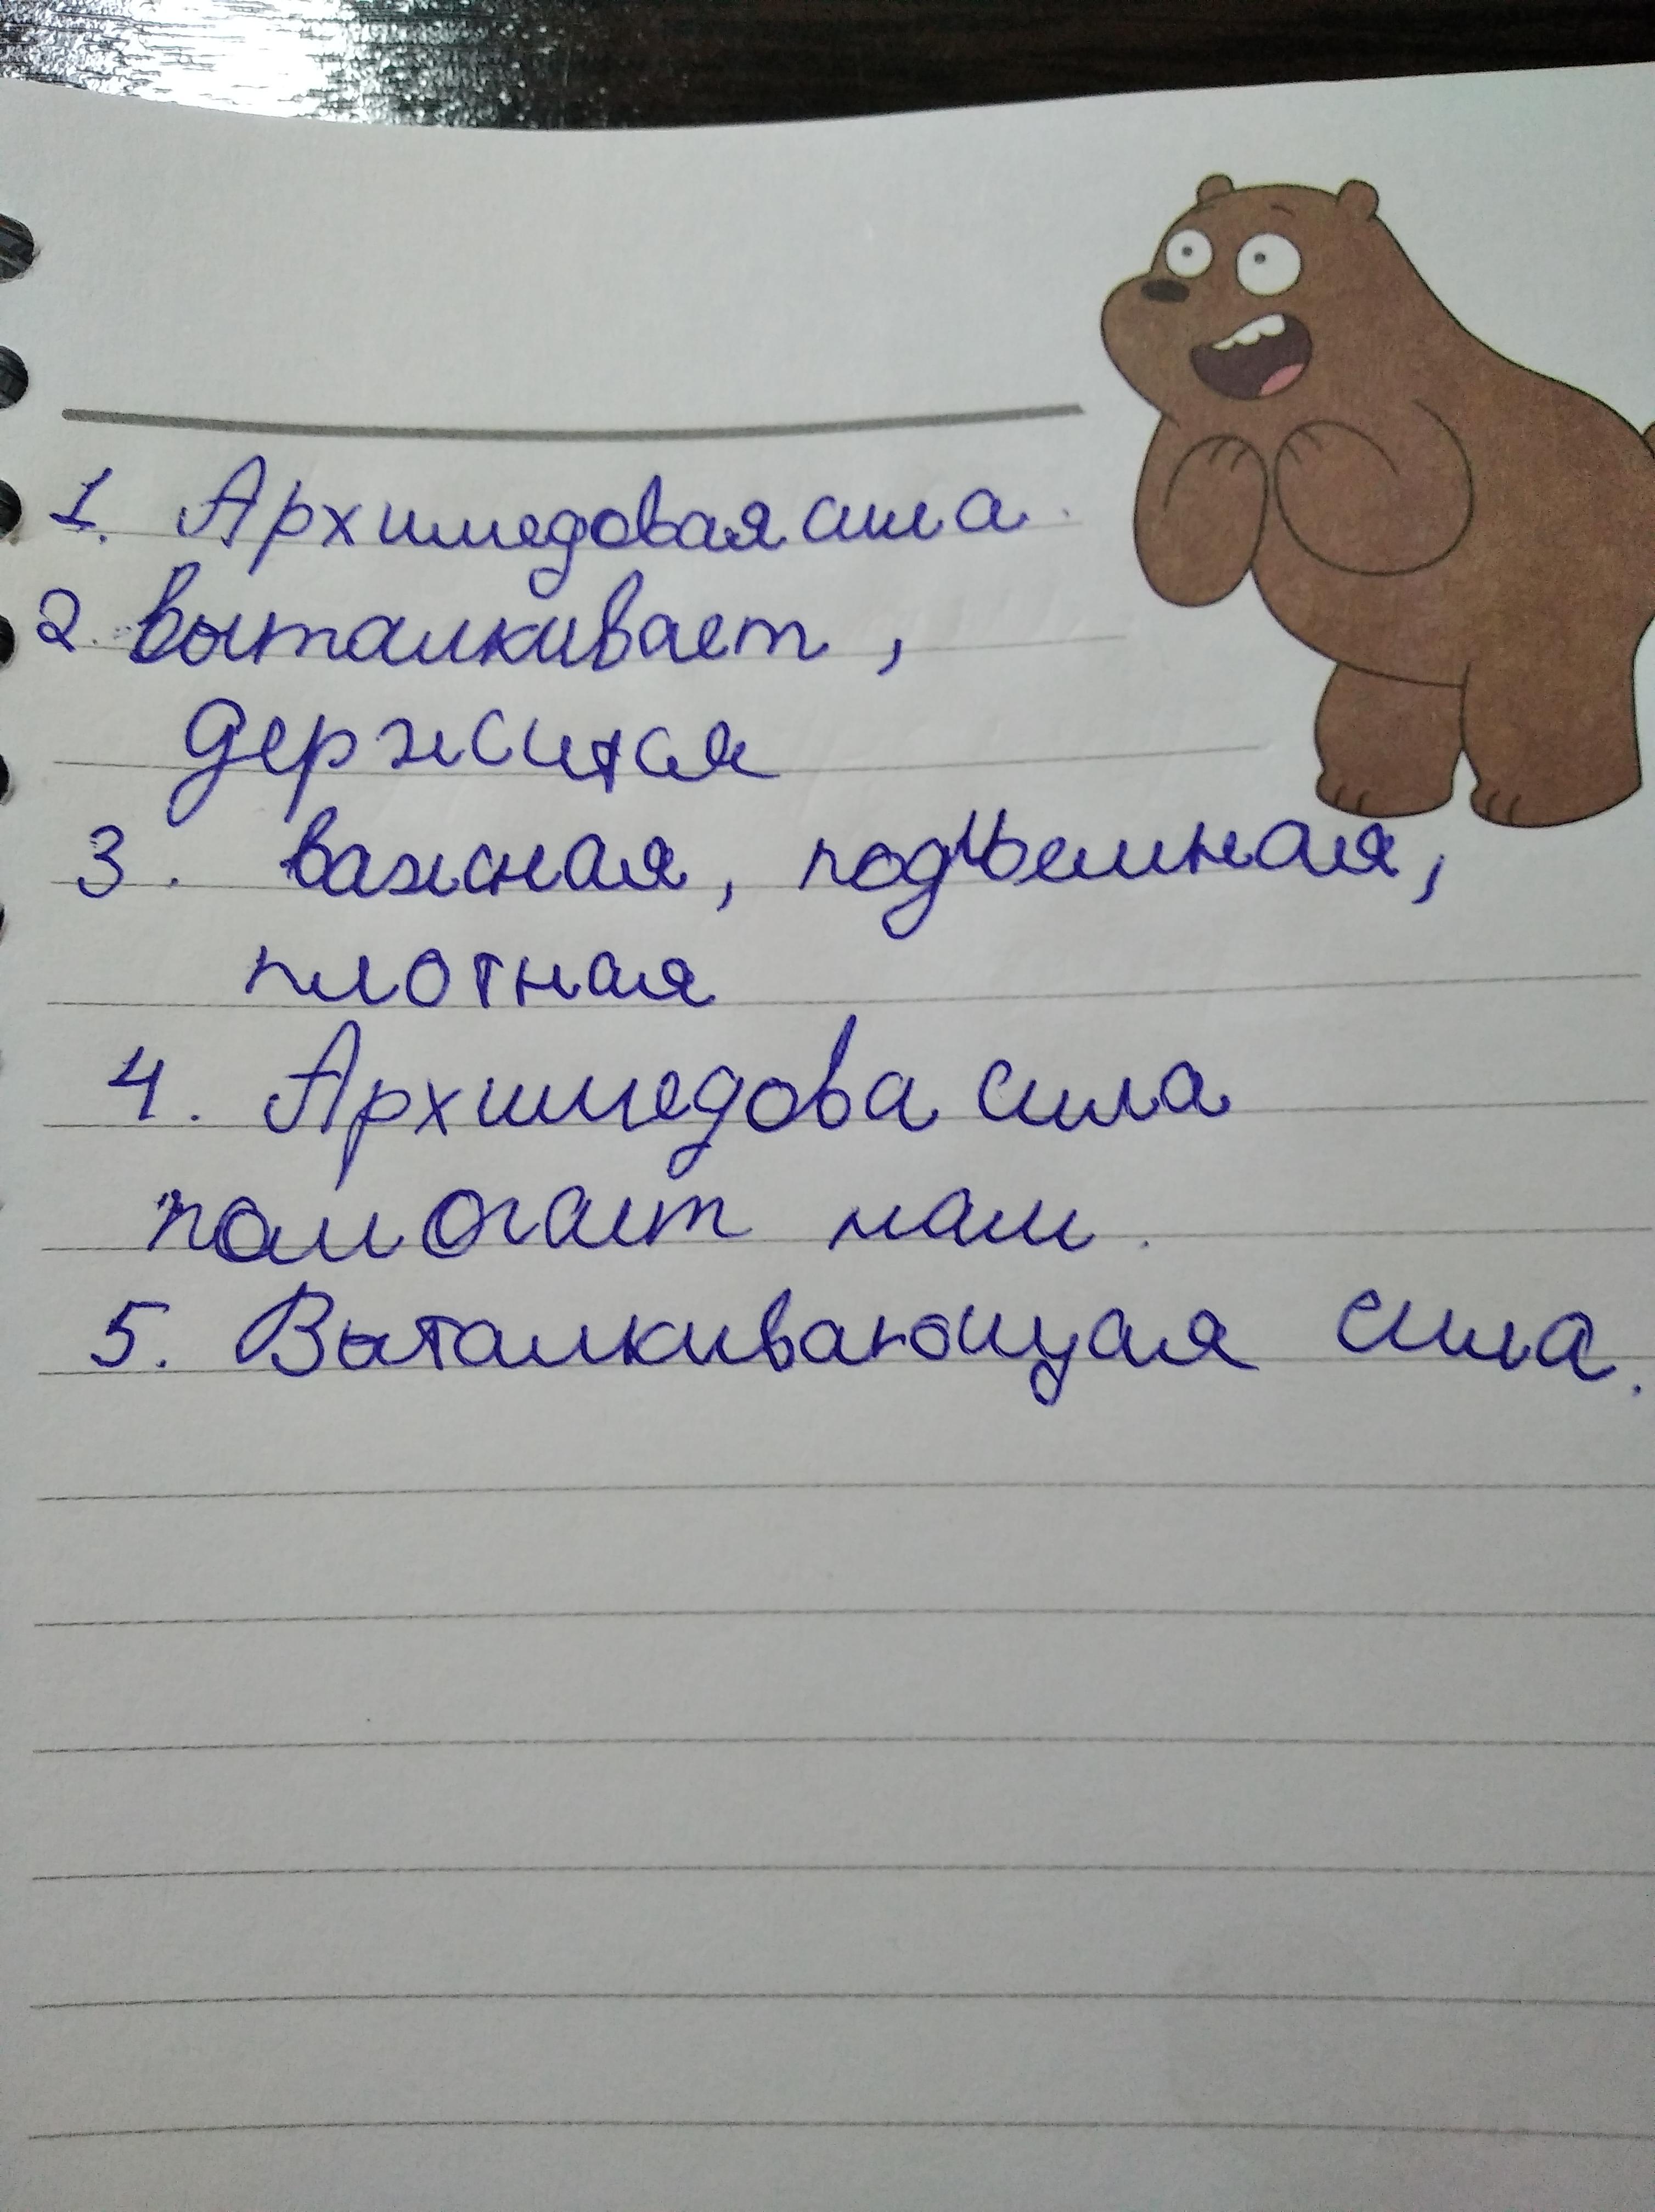 1. Архимедовая сила.
2. выталкивает,
держится
3. важная, подъемная,
плотная
4. Архимедова сила
помогает нам.
5. Выталкивающая сила.